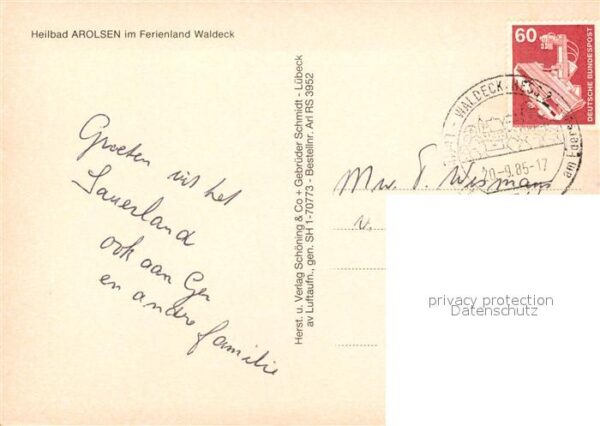 Heilbad AROLSEN im Ferienland Waldeck
60
DEUTSCHE BUNDESPOST
WALDECK, HESS 2
20-9.85-17
am
Groeten uit het
Sauerland
ook aan Ger
en andre familie
Herst. u. Verlag Schöning & Co + Gebrüder Schmidt - Lübeck
av Luftaufn., gen. SH 1-70773 - Bestellnr. Arl RS 3952
Mw. T. Wismans
v.
privacy protection
Datenschutz